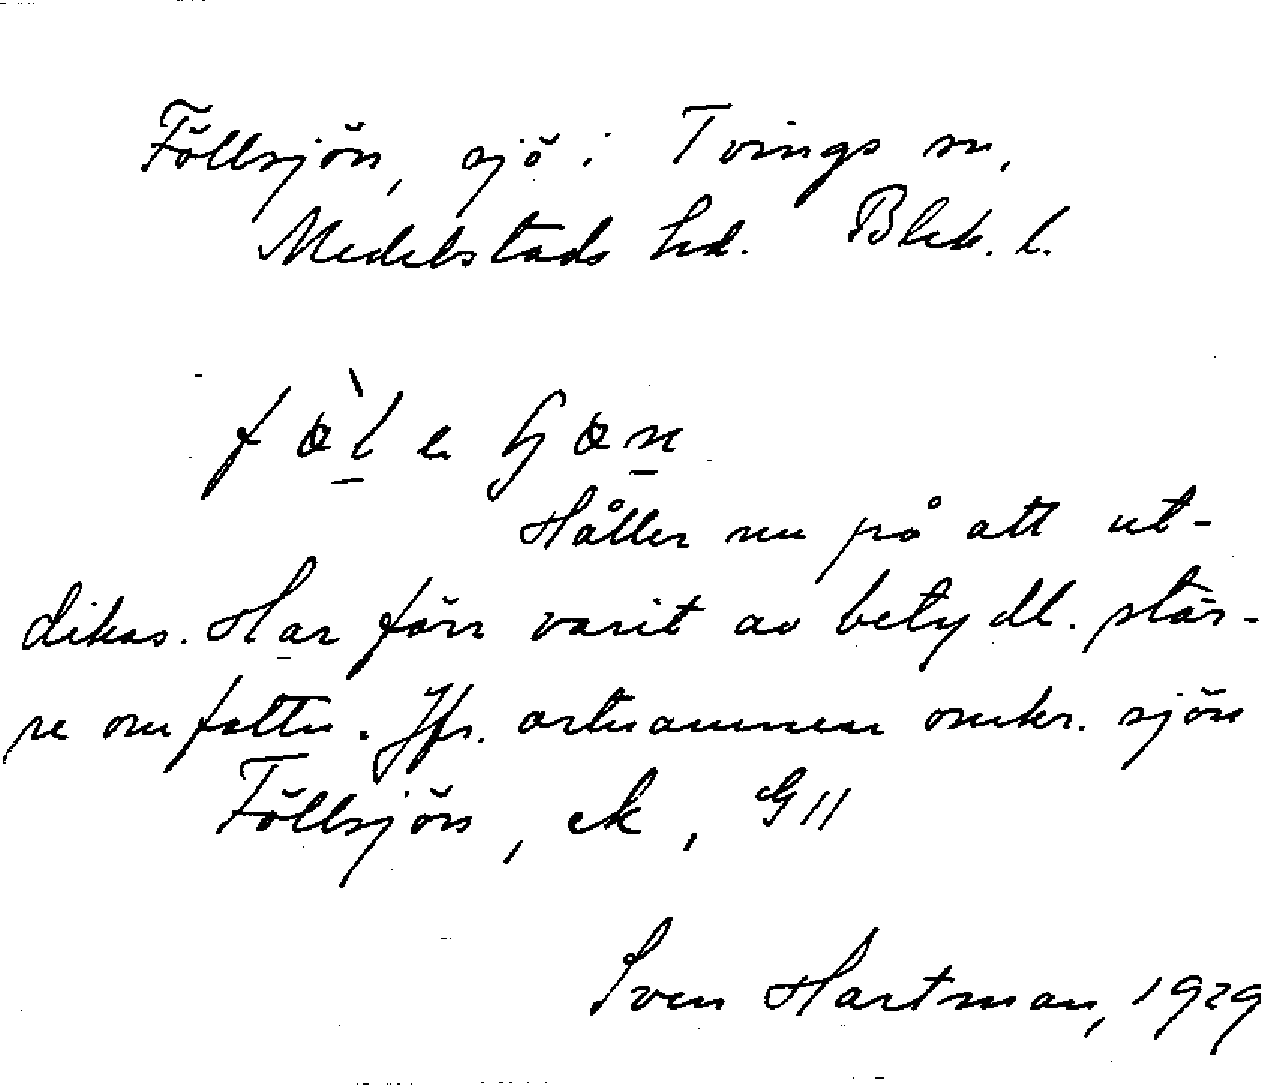 Föllsjön, sjö i Tvings sn,
Medelstads hd. Blek. l.
Håller nu på att ut-
dikas. Har förr varit av betydl. stör-
re omfattn. Jfr. ortnamnen omkr. sjön
Föllsjön, ek, G11
Sven Hartman, 1929